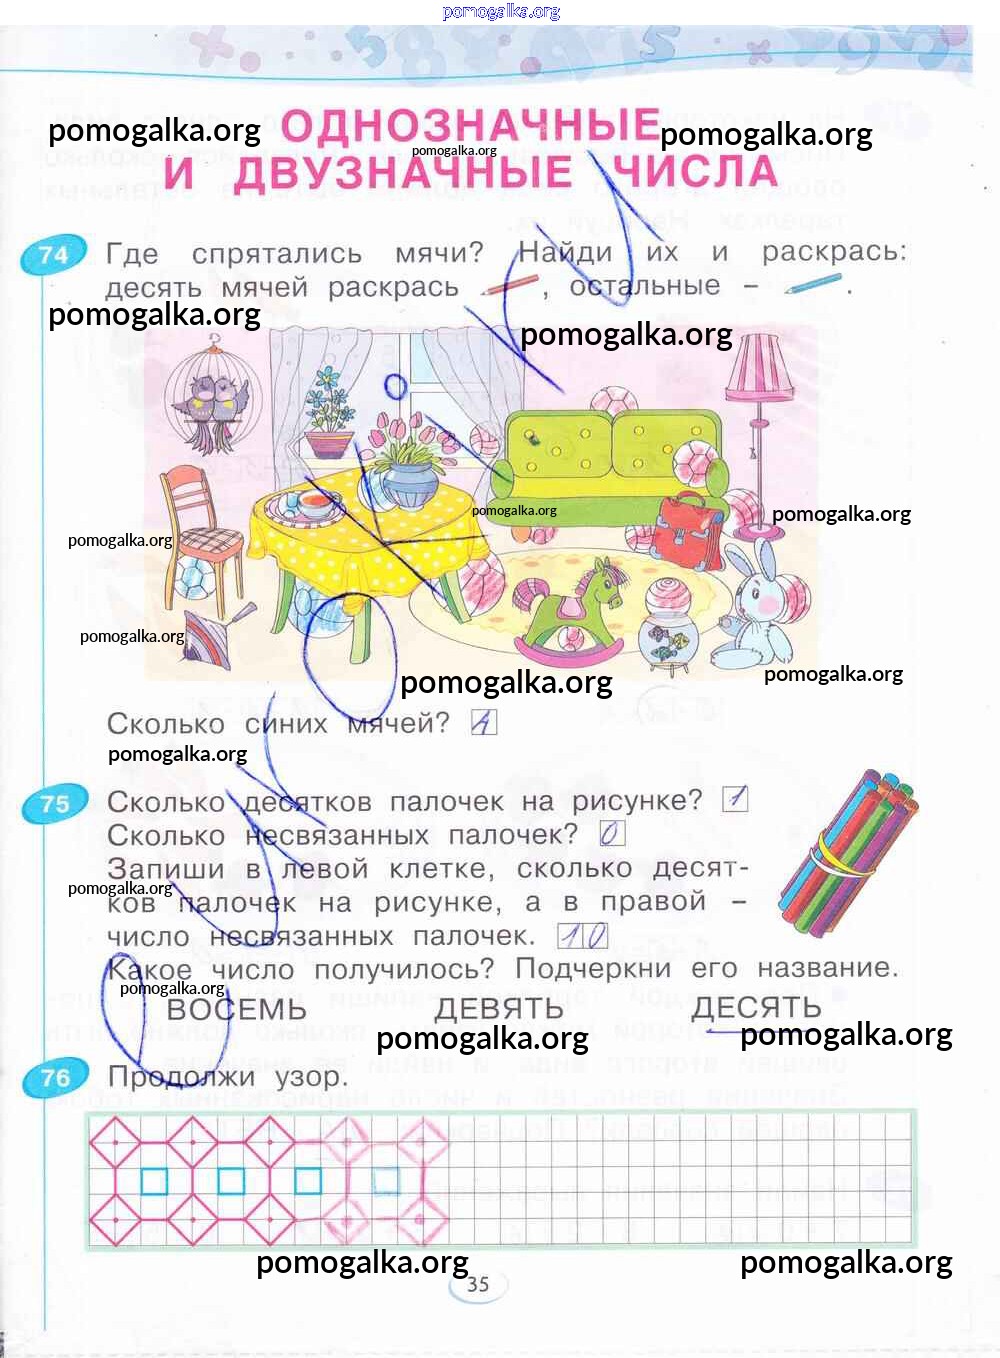 pomogalka.org
ОДНОЗНАЧНЫЕ
pomogalka.org
pomogalka.org
pomogalka.org
И ДВУЗНАЧНЫЕ ЧИСЛА
74
Где спрятались мячи? Найди их и раскрась:
десять мячей раскрась , остальные – .
pomogalka.org
pomogalka.org
pomogalka.org
pomogalka.org
pomogalka.org
pomogalka.org
pomogalka.org
pomogalka.org
Сколько синих мячей?
pomogalka.org
75
Сколько десятков палочек на рисунке? 1
Сколько несвязанных палочек? 0
pomogalka.org
Запиши в левой клетке, сколько десят-
pomogalka.org
ков палочек на рисунке, а в правой –
число несвязанных палочек. 10
Какое число получилось? Подчеркни его название.
pomogalka.org
ВОСЕМЬ ДЕВЯТЬ ДЕСЯТЬ
pomogalka.org
pomogalka.org
76
Продолжи узор.
pomogalka.org
pomogalka.org
35